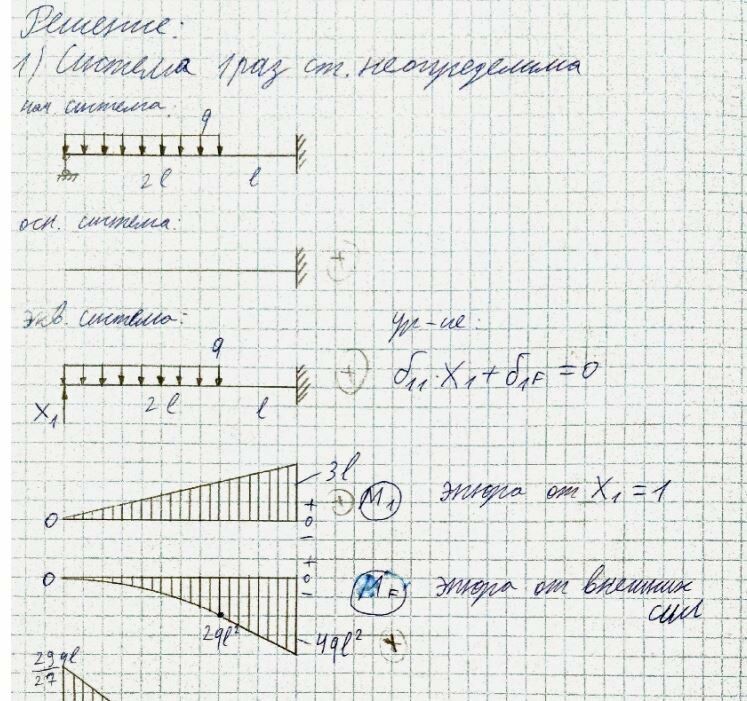 Решение:
1) Система 1 раз ст. неопределима
нач. система:
q
2l l
осн. система:
экв. система:
ур-ие:
q
δ11·X1+δ1F=0
X1 2l l
3l
M1 эпюра от X1=1
+
0 0
-
+
0 0
-
MF эпюра от внешних
сил
2ql²
4ql²
29/27 ql